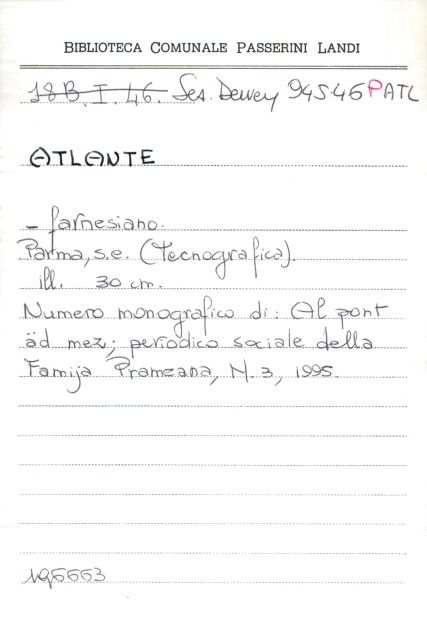 BIBLIOTECA COMUNALE PASSERINI LANDI
18B.I.46. Ses. Dewey 945.46PATL
ATLANTE
- farnesiano.
Parma, s.e. (Tecnografica).
ill. 30 cm.
Numero monografico di: Al pont
äd mez; periodico sociale della
Famija Pramzana, N. 3, 1995.